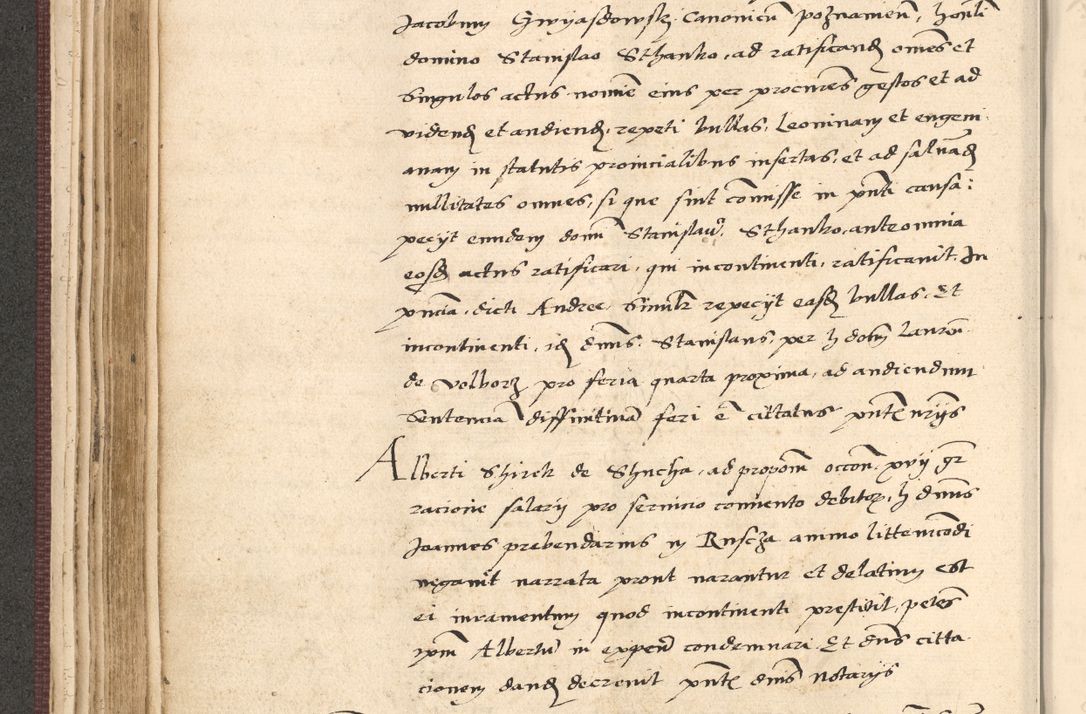 Jacobum Gwyasdowsky Canonicum poznanien, honli
domino Stanislao Sthanko, ad ratificand omes et
Singulos actus nomine eius per procures gestos et ad
vidend et audiend, repeti bullas, Leoninam et eugeni
anam in statutis provincialibus insertas, et ad saluand
nullitates omnes, si que sint comisse in pnti causa:
petijt eundem domi Stanislau, Sthanko, ante omnia
eosd actus ratificari, qui incontinenti, ratificauit. In
pncia, dicti Andree, Similr repetijt easd bullas, Et
incontinenti, id dnus, Stanislaus, per h dom Lauren
de Volborz pro feria quarta proxima, ad audiendum
Sententia diffinitiua feri e cittatus pntt nrijs
Alberti Shirek de Slucha, ad propom occon, xvij gr
racione salarij pro seruicio conuento debitor, h dnus
Joannes prebendarius in Ruscza animo litte contdi
negauit narrata prout narantur et delatum est
ei iuramentum quod incontinenti prestitit, petes
ipm Albertu in expen condemnari. Et dns citta
cionem dand decreuit pntt dnis notarijs